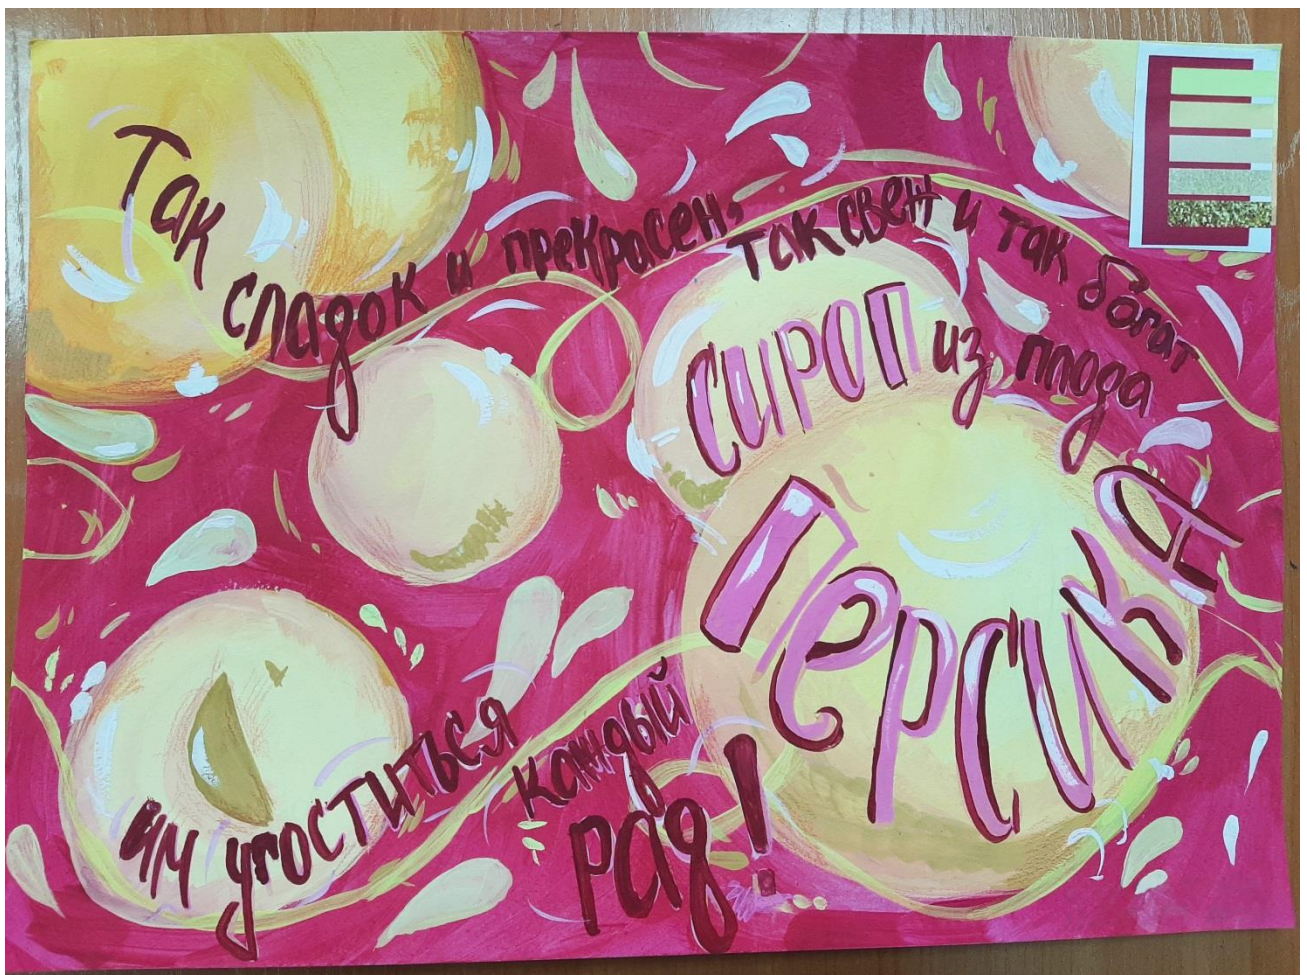 Так сладок и прекрасен,
так свеж и так богат
сироп из плода
Персика
им угоститься
каждый
рад!
Е